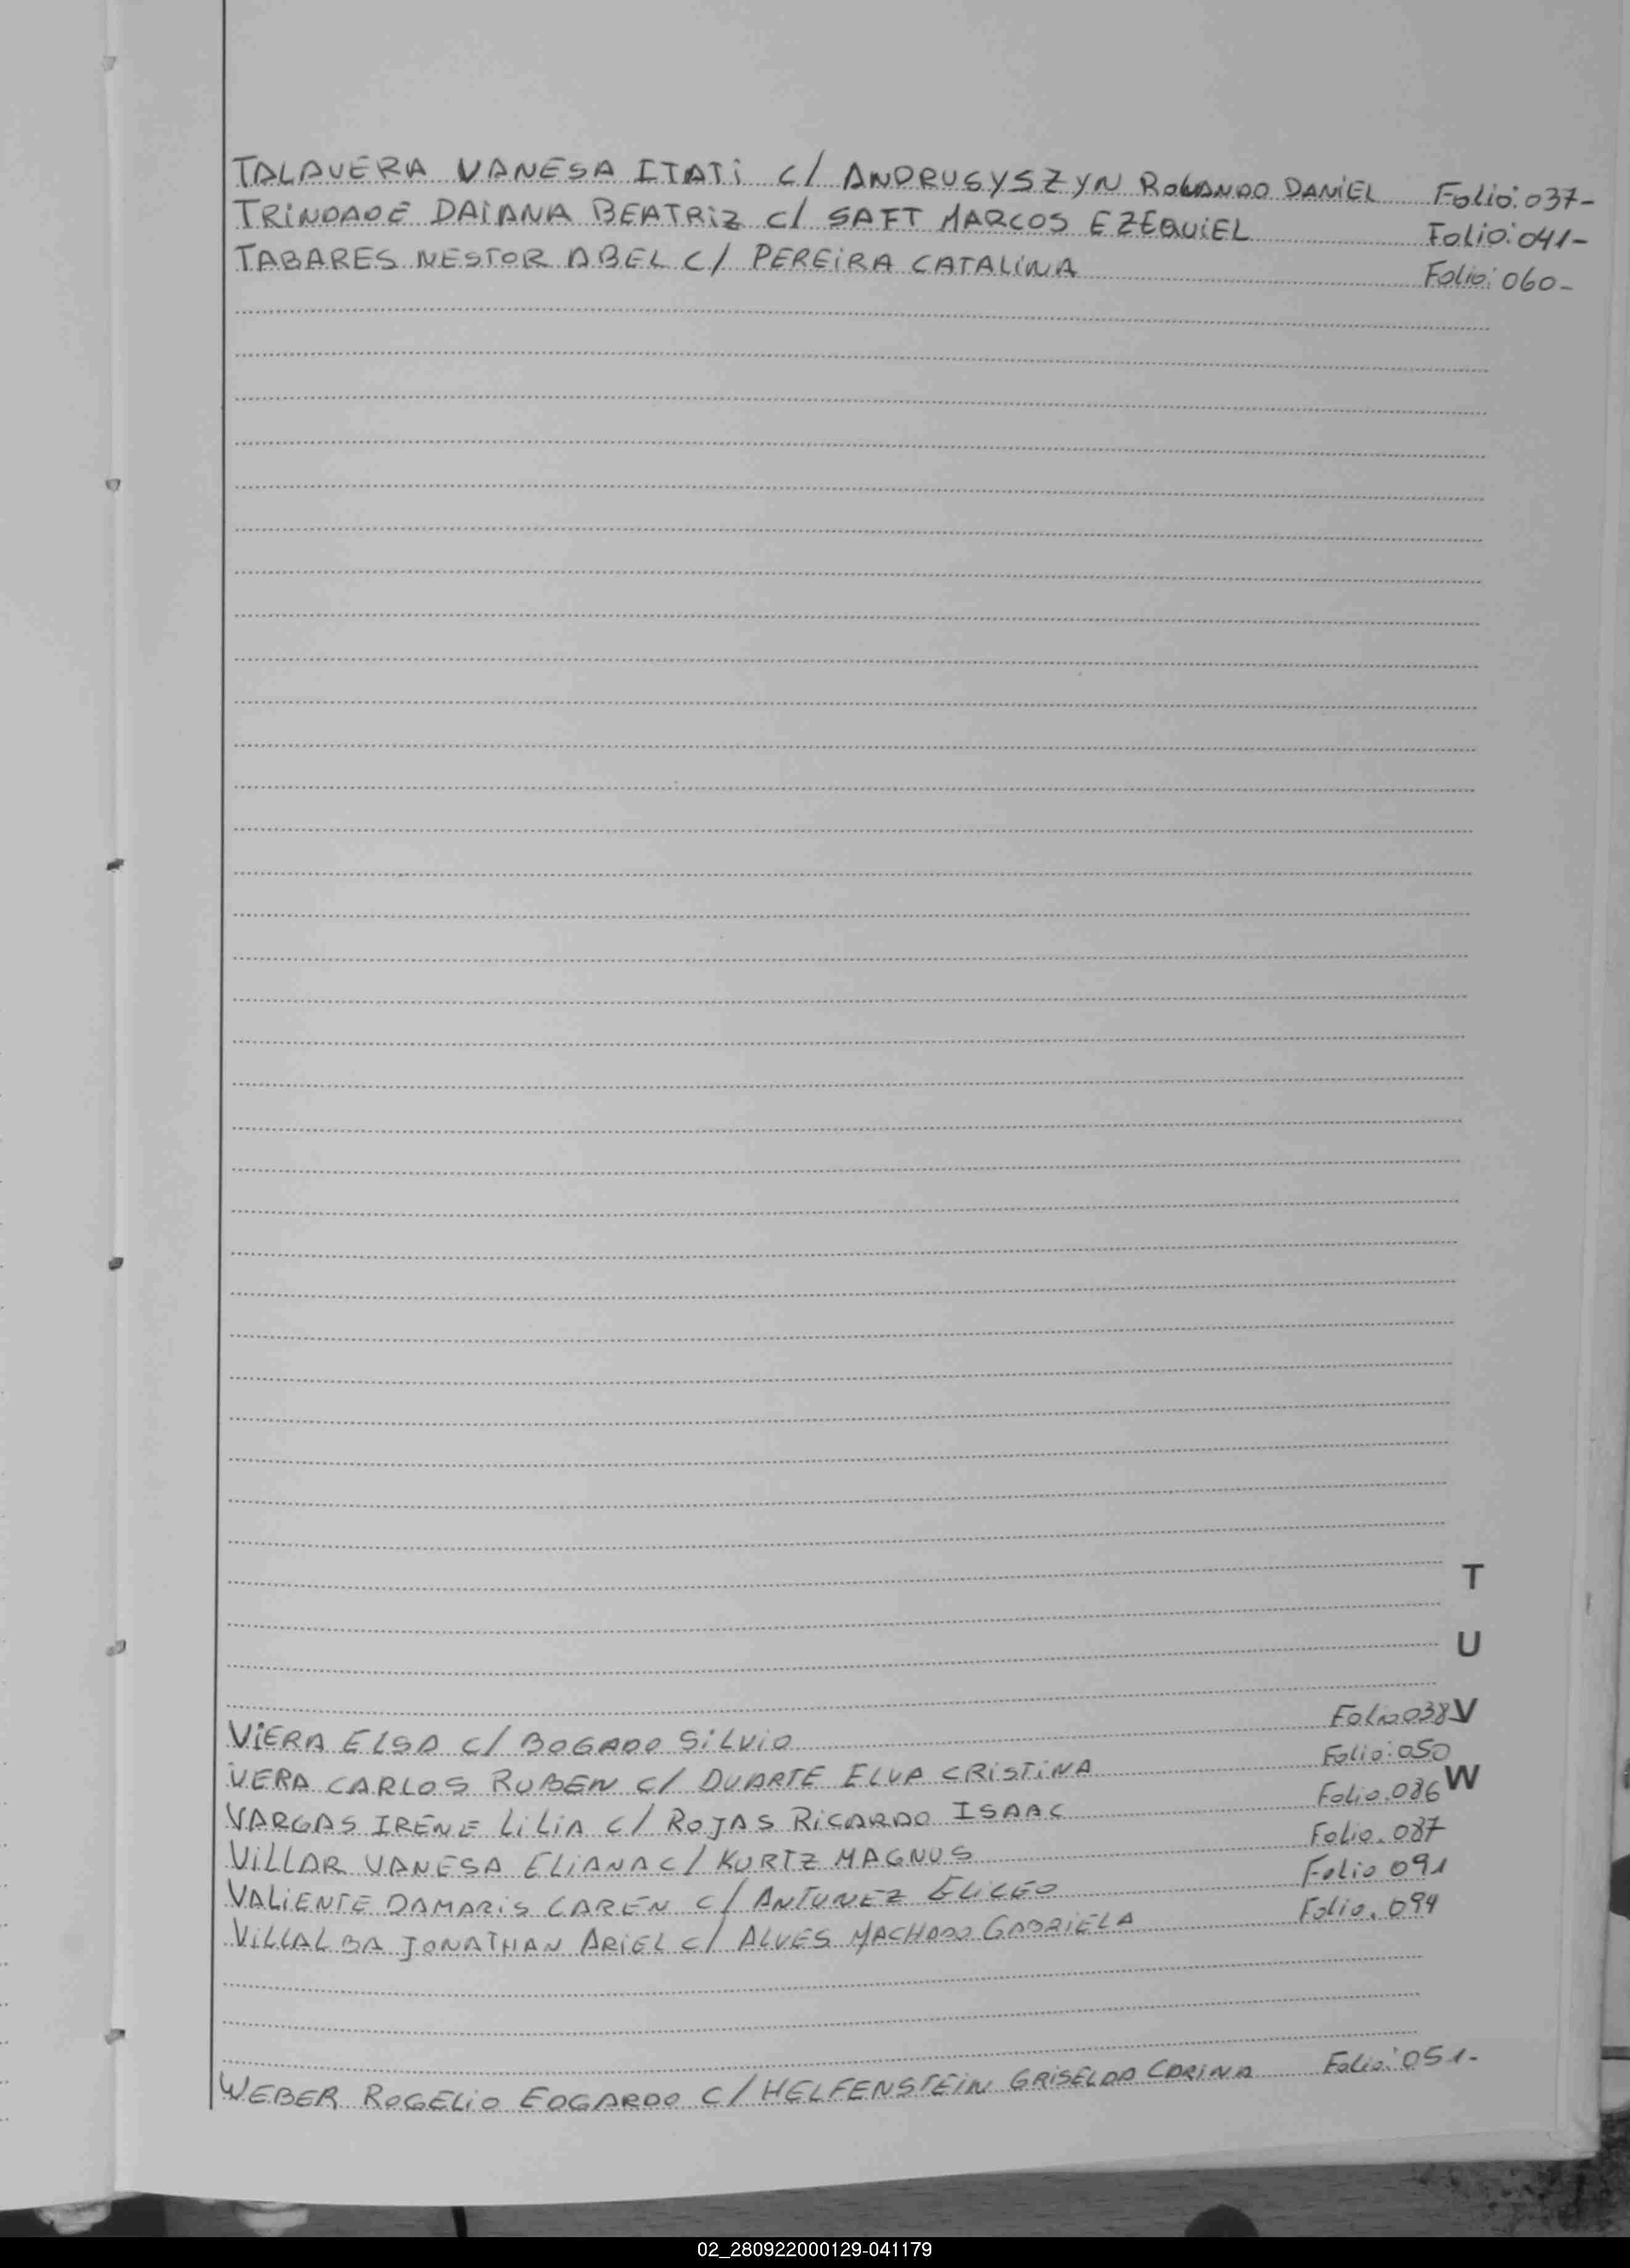 TALAVERA VANESA ITATI c/ ANDRUSYSZYN ROLANDO DANIEL Folio: 037-
TRINDADE DAIANA BEATRIZ c/ SAFT MARCOS EZEQUIEL Folio: 041-
TABARES NESTOR ABEL c/ PEREIRA CATALINA Folio: 060-
T
U
VIERA ELSA c/ BOGADO SILVIO Folio 038 V
VERA CARLOS RUBEN c/ DUARTE ELVA CRISTINA Folio: 050
W
VARGAS IRENE LILIA c/ ROJAS RICARDO ISAAC Folio. 086
VILLAR VANESA ELIANA c/ KURTZ MAGNUS Folio. 087
VALIENTE DAMARIS CAREN c/ ANTUNEZ ELICEO Folio 091
VILLALBA JONATHAN ARIEL c/ ALVES MACHADO GABRIELA Folio. 094
WEBER ROGELIO EDGARDO c/ HELFENSTEIN GRISELDA CARINA Folio: 051-
02_280922000129-041179